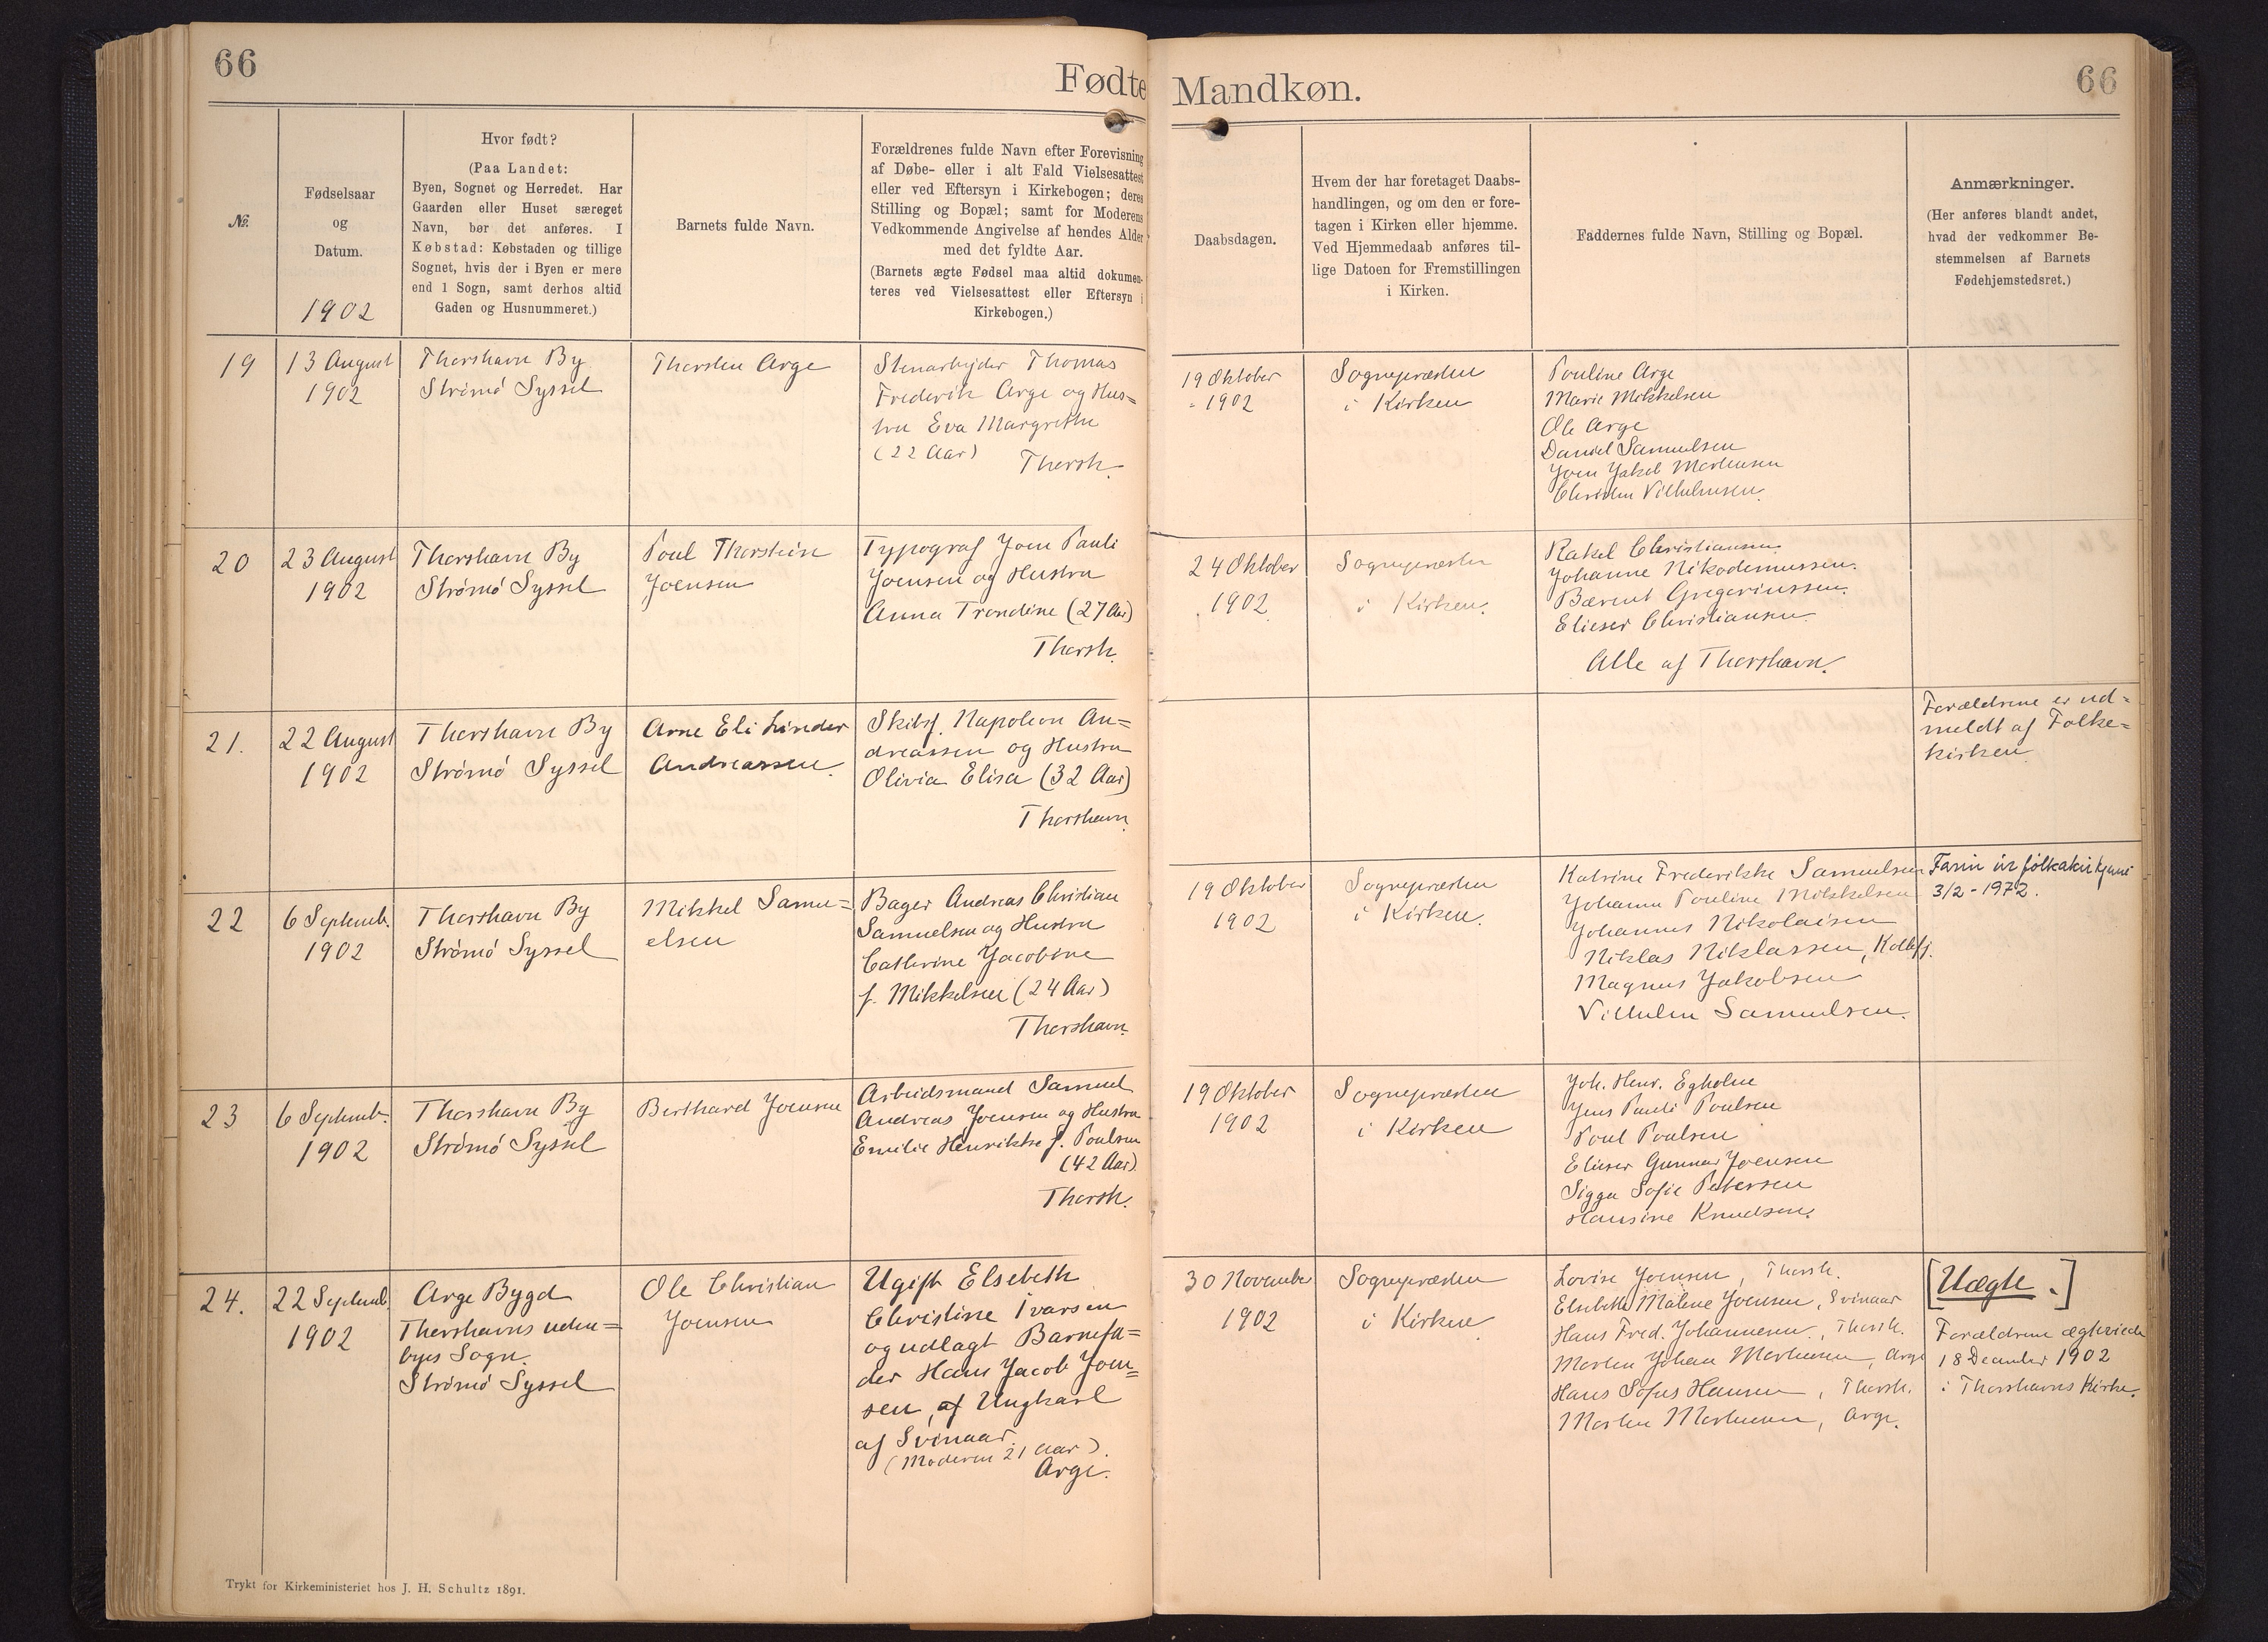 66
Fødte
Mandkøn.
66
№.
Fødselsaar
og
Datum.
1902
Hvor født?
(Paa Landet:
Byen, Sognet og Herredet. Har
Gaarden eller Huset særeget
Navn, bør det anføres. I
Købstad: Købstaden og tillige
Sognet, hvis der i Byen er mere
end 1 Sogn, samt derhos altid
Gaden og Husnummeret.)
Barnets fulde Navn.
Forældrenes fulde Navn efter Forevisning
af Døbe- eller i alt Fald Vielsesattest
eller ved Eftersyn i Kirkebogen; deres
Stilling og Bopæl; samt for Moderens
Vedkommende Angivelse af hendes Alder
med det fyldte Aar.
(Barnets ægte Fødsel maa altid dokumen-
teres ved Vielsesattest eller Eftersyn i
Kirkebogen.)
Daabsdagen.
Hvem der har foretaget Daabs-
handlingen, og om den er fore-
tagen i Kirken eller hjemme.
Ved Hjemmedaab anføres til-
lige Datoen for Fremstillingen
i Kirken.
Faddernes fulde Navn, Stilling og Bopæl.
Anmærkninger.
(Her anføres blandt andet,
hvad der vedkommer Be-
stemmelsen af Barnets
Fødehjemstedsret.)
19
13 August
1902
Thorshavn By
Strømø Syssel
Thorsten Arge
Stenarbejder Thomas
Frederik Arge og Hus=
tru Eva Margrethe
(22 Aar)
Thorsh.
19 Oktober
1902
Sognepræsten
i Kirken
Pouline Arge
Marie Mikkelsen
Ole Arge
Daniel Samuelsen
Joen Jakob Mortensen
Christen Vilhelmsen.
20
23 August
1902
Thorshavn By
Strømø Syssel
Poul Thorstein
Joensen
Typograf Joen Pauli
Joensen og Hustru
Anna Trondine (27 Aar)
Thorsh.
24 Oktober
1902.
Sognepræsten
i Kirken.
Rakel Christiansen.
Johanne Nikodemussen.
Bærent Gregoriussen.
Elieser Christiansen
Alle af Thorshavn.
21.
22 August
1902
Thorshavn By
Strømø Syssel
Arne Eli Linder
Andreassen.
Skibsf. Napoleon An=
dreassen og Hustru
Olivia Elisa (32 Aar)
Thorshavn.
Forældrene er ud=
meldt af Folke=
kirken.
22
6 Septemb.
1902
Thorshavn By
Strømø Syssel
Mikkel Samu=
elsen
Bager Andreas Christian
Samuelsen og Hustru
Cathrine Jacobine
f. Mikkelsen (24 Aar)
Thorshavn.
19 Oktober
1902
Sognepræsten
i Kirken.
Katrine Frederikke Samuelsen
Johanne Pouline Mikkelsen
Johannes Nikolaisen
Niklas Niklassen, Kollefj.
Magnus Jakobsen
Vilhelm Samuelsen.
Farin úr fólkakirkjuni
3/2 - 1972.
23
6 Septemb.
1902
Thorshavn By
Strømø Syssel
Berthard Joensen
Arbeidsmand Samuel
Andreas Joensen og Hustru
Emilie Henrikke f. Poulsen
(42 Aar).
Thorsh.
19 Oktober
1902
Sognepræsten
i Kirken
Joh. Henr. Egholm
Jens Pauli Poulsen
Poul Poulsen
Elieser Gunnar Joensen
Sigga Sofie Petersen
Hansine Knudsen.
24.
22 Septemb.
1902
Arge Bygd
Thorshavns uden=
byes Sogn.
Strømø Syssel
Ole Christian
Joensen
Ugift Elsebeth
Christine Ivarsen
og udlagt Barnefa=
der Hans Jacob Joen=
sen, af Ungkarl
af Svinaar.
(Moderen 21 Aar).
Arge.
30 November
1902
Sognepræsten
i Kirken
Lovise Joensen, Thorsh.
Elsebeth Malene Joensen, Svinaar
Hans Fred. Johannesen, Thorsh.
Morten Johan Mortensen, Arge
Hans Sofus Hansen, Thorsh.
Morten Mortensen, Arge.
[Uægte.]
Forældrene ægteviede
18 December 1902
i Thorshavns Kirke.
Trykt for Kirkeministeriet hos J. H. Schultz 1891.